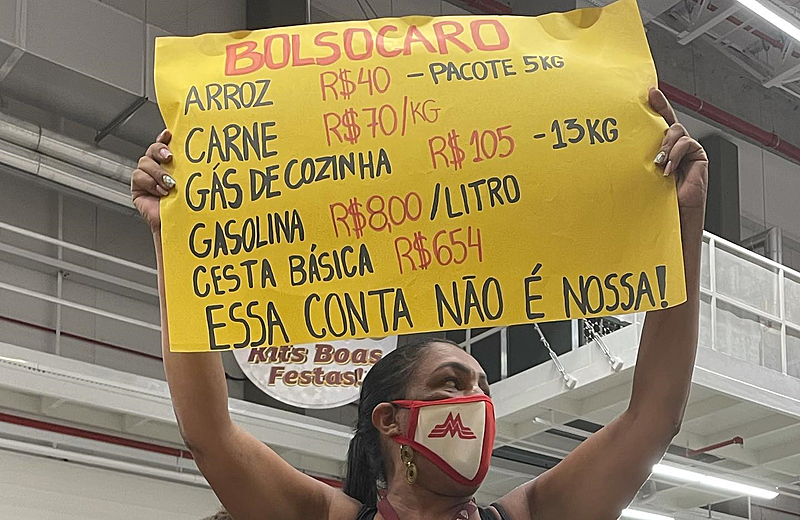 BOLSOCARO
ARROZ R$40 - PACOTE 5KG
CARNE R$70/KG
GÁS DE COZINHA R$105 - 13KG
GASOLINA R$8,00/LITRO
CESTA BÁSICA R$654
ESSA CONTA NÃO É NOSSA!
Kits Boas
Festas!